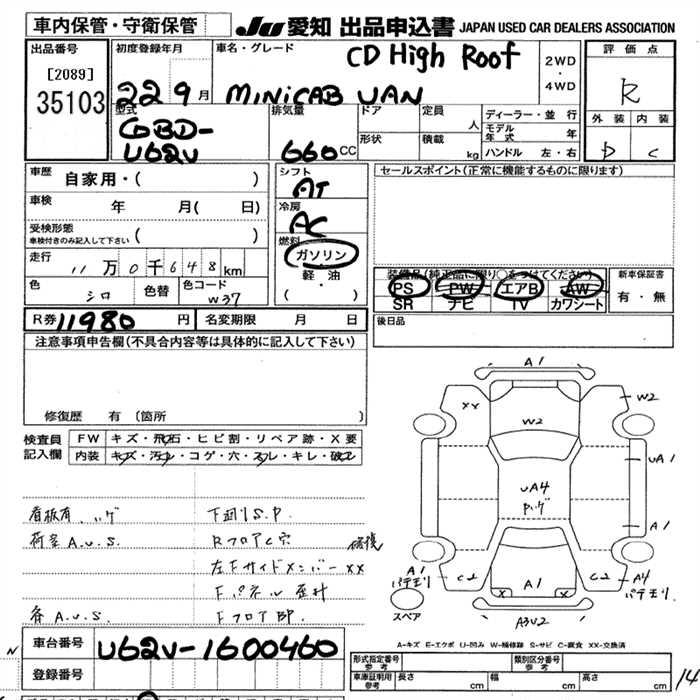 車内保管・守衛保管
JU 愛知 出品申込書 JAPAN USED CAR DEALERS ASSOCIATION
出品番号
[2089]
35103
初度登録年月
22 9 月
車名・グレード
CD High Roof
MiNiCAB VAN
2WD
・
4WD
評価点
R
外装 内装
D C
型式
GBD-
U62V
排気量
660 CC
ドア
形状
定員
人
積載
kg
ディーラー・並行
モデル年式 年
ハンドル 左・右
車歴 自家用・( )
車検 年 月( 日)
受検形態
車検付きのみ記入して下さい ( )
走行 11 万 0 千 6 4 8 km
色 シロ 色替 色コード W37
シフト
AT
冷房
AC
燃料
ガソリン
軽・油
( )
セールスポイント(正常に機能するものに限ります)
装備品(純正品に限り○をつけてください)
PS PW エアB AW
SR ナビ TV カワシート
新車保証書
有・無
R券 11980 円 名変期限 月 日
後日品
注意事項申告欄(不具合内容等は具体的に記入して下さい)
修復歴 有(箇所 )
検査員記入欄
FW キズ・飛石・ヒビ割・リペア跡・X要
内装 キズ・汚れ・コゲ・穴・スレ・キレ・破れ
看板有 ハゲ 下回りS.P.
荷室A.U.S. Rフロア穴 修復
左Fサイドメンバー XX
Fパネル 歪計
各A.U.S. Fフロア
A1
XX
W2
W2
UA1
UA4
ハゲ
A1
A1
パテモリ
C2
A1
X X
C2
A4
パテモリ
スペア
A3U2
A-キズ E-エクボ U-凹み W-補修跡 S-サビ C-腐食 XX-交換済
N
車台番号 U62V-1600460
登録番号
形式指定番号
参考
類別区分番号
参考
車庫証明用
参考
長さ cm 幅 cm 高さ cm
14